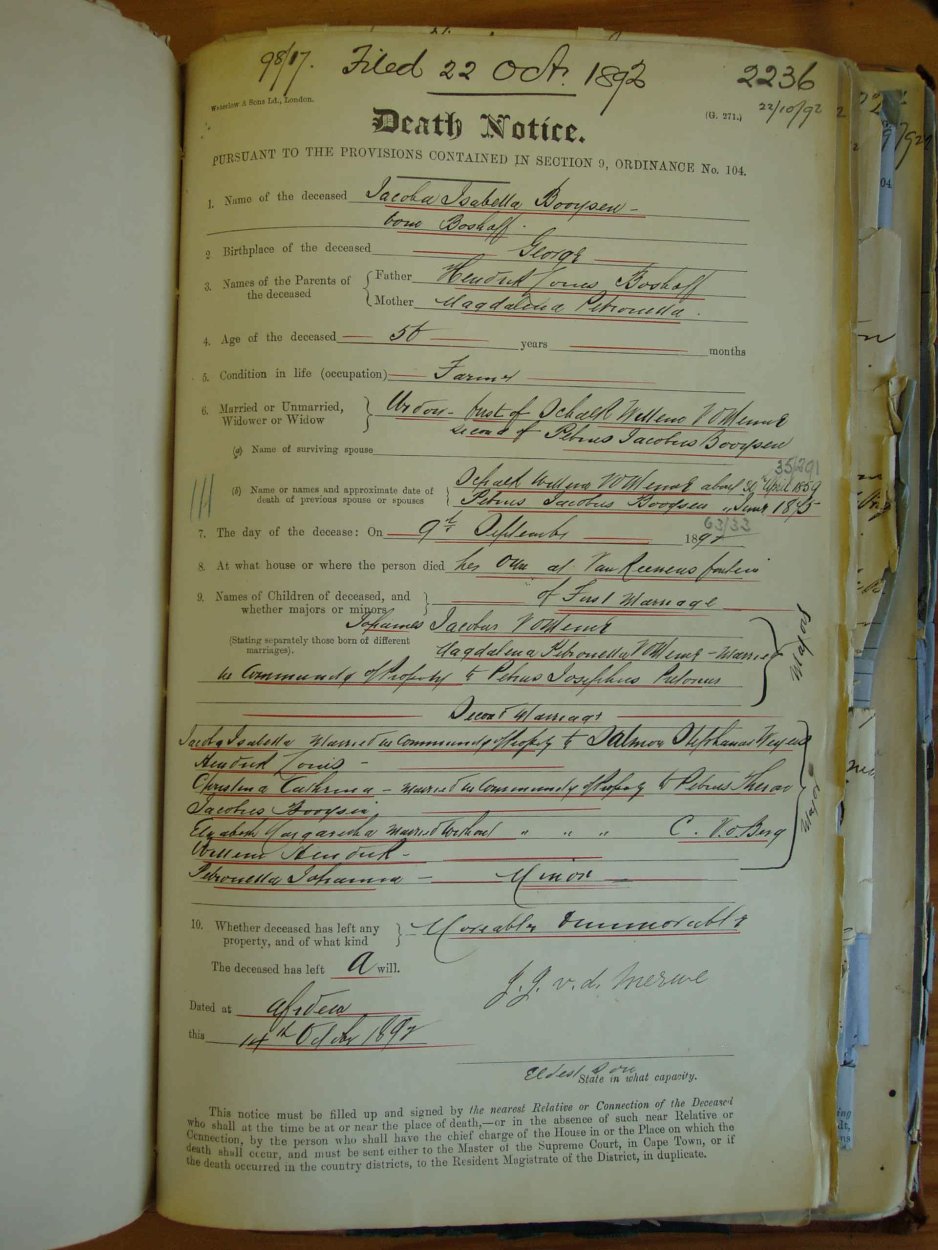 98/17. Filed 22 Oct. 1892 2236
Waterlow & Sons Ld., London. (G. 271.) 22/10/92
Death Notice.
PURSUANT TO THE PROVISIONS CONTAINED IN SECTION 9, ORDINANCE No. 104.
1. Name of the deceased Jacoba Isabella Booysen -
born Boshoff.
2 Birthplace of the deceased George
3. Names of the Parents of the deceased { Father Hendrik Louis Boshoff
Mother Magdalena Petronella.
4. Age of the deceased 50 years months
5. Condition in life (occupation) Farmer
6. Married or Unmarried, Widower or Widow } Widow - first of Schalk Willem VDMerwe
second of Petrus Jacobus Booysen
(a) Name of surviving spouse
35/291
(b) Name or names and approximate date of death of previous spouse or spouses { Schalk Willem VDMerwe about April 1859
Petrus Jacobus Booysen " June 1875
63/33
7. The day of the decease: On 9th September 1892
8. At what house or where the person died her own at Van Reenens fontein
9. Names of Children of deceased, and whether majors or minors } of First Marriage
Johannes Jacobus VDMerwe
(Stating separately those born of different marriages). Magdalena Petronella VDMerwe - Married
in Community of Property to Petrus Josephus
Majors
Second Marriage
Jacoba Isabella Married in Community of Property to Salmon Stephanus
Hendrik Louis -
Christina Cathrina - Married in Community of Property to Petrus Theron
Jacobus Booysen
Elizabeth Margaretha Married without " " " C. V.d Berg
Willem Hendrik -
Majors
Petronella Johanna - Minor
10. Whether deceased has left any property, and of what kind } Moveable & Immovable
The deceased has left a will.
J. J. v. d. Merwe
Dated at
this 14th October 1892
Eldest Son
State in what capacity.
This notice must be filled up and signed by the nearest Relative or Connection of the Deceased
who shall at the time be at or near the place of death,—or in the absence of such near Relative or
Connection, by the person who shall have the chief charge of the House in or the Place on which the
death shall occur, and must be sent either to the Master of the Supreme Court, in Cape Town, or if
the death occurred in the country districts, to the Resident Magistrate of the District, in duplicate.